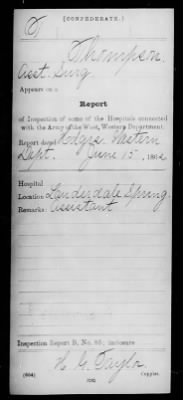 (CONFEDERATE.)
T
Thompson
Asst. Surg
Appears on a
Report
of Inspection of some of the Hospitals connected
with the Army of the West, Western Department.
Report dated Hdqrs. Western
Dept. June 15, 1862
Hospital
Location Lauderdale Spring.
Remarks: Assistant
Inspection Report B, No. 85; inclosure
H. G. Taylor
(604) Copyist.